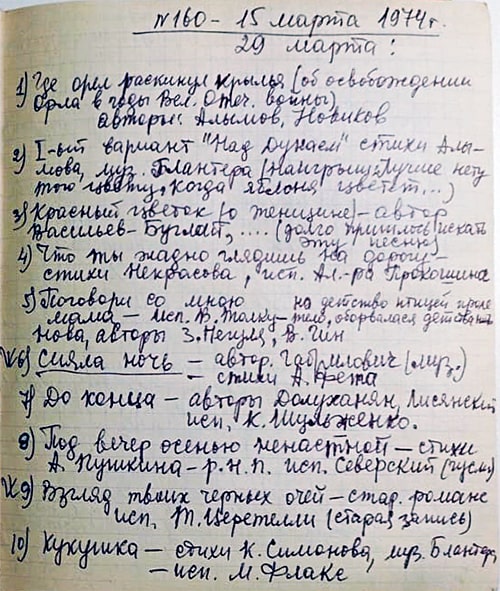 №160 – 15 марта 1974г.
29 марта:
1) Где орел раскинул крылья (об освобождении
Орла в годы Вел. Отеч. войны)
авторы: Алымов, Новиков
2) I-ый вариант "Над Дунаем" стихи Алы-
мова, муз. Блантера (Наигрыш: Лучше нету
того цвету, когда яблоня цветет...)
3) Красный цветок (о женщине) – автор
Васильев-Буглай, .... (долго пришлось искать
эту песню)
4) Что ты жадно глядишь на дорогу –
стихи Некрасова, исп. Ал-ра Прокошина
5) Поговори со мною но детство птицей
мама – исп. В. Толку-
нова, авторы З. Негуля, В. Гин
V6) Сияла ночь – автор. Габрилович (муз.)
– стихи А. Фета
7) До конца – авторы Долуханян, Лисянский
исп, К. Шульженко.
8) Под вечер осенью ненастной – стихи
А. Пушкина – р.н.п. исп. Северский (гусли)
V9) Взгляд твоих черных очей – стар. романс
исп, Т. Церетелли (старая запись)
10) Кукушка – стихи К. Симонова, муз. Блантера,
– исп. М. Флакс